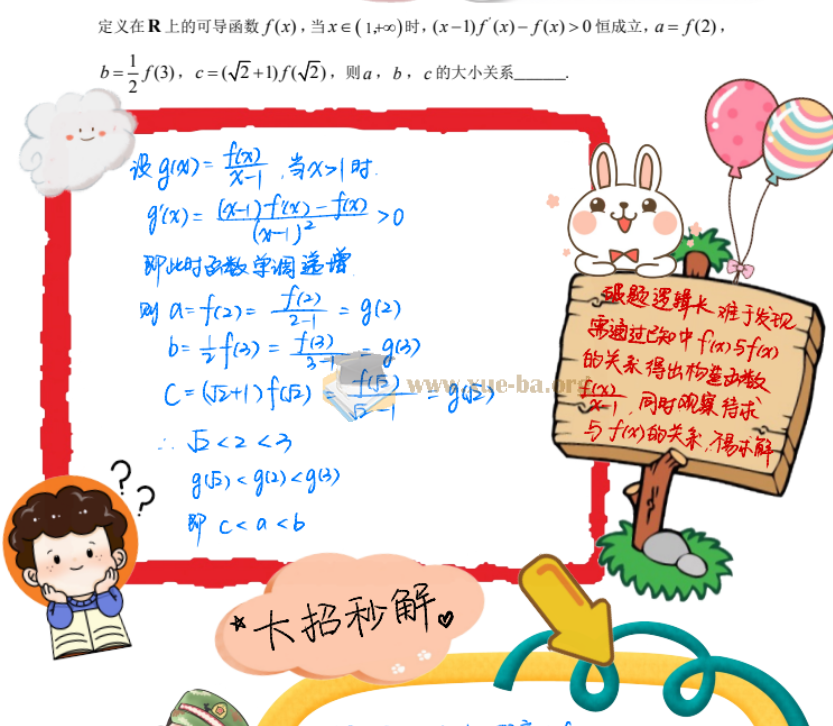 定义在 R 上的可导函数 f(x)，当 x∈(1,+∞)时，(x−1)f′(x)−f(x)>0 恒成立，a=f(2)，
b=1/2 f(3)，c=(√2+1)f(√2)，则 a，b，c 的大小关系______.
设 g(x)=f(x)/(x-1)，当x>1时.
g'(x)=((x-1)f'(x)-f(x))/(x-1)² >0
即此时函数单调递增
则 a=f(2)=f(2)/(2-1)=g(2)
b=1/2 f(3)=f(3)/(3-1)=g(3)
C=(√2+1)f(√2)=f(√2)/(√2-1)=g(√2)
www.xue-ba.org
∴ √2<2<3
g(√2)<g(2)<g(3)
即 c<a<b
题逻辑长 难于发现
需通过已知中 f'(x)与f(x)
的关系得出构造函数
f(x)/(x-1)，同时观察待求
与 f(x)的关系，得求解
? ?
大招秒解